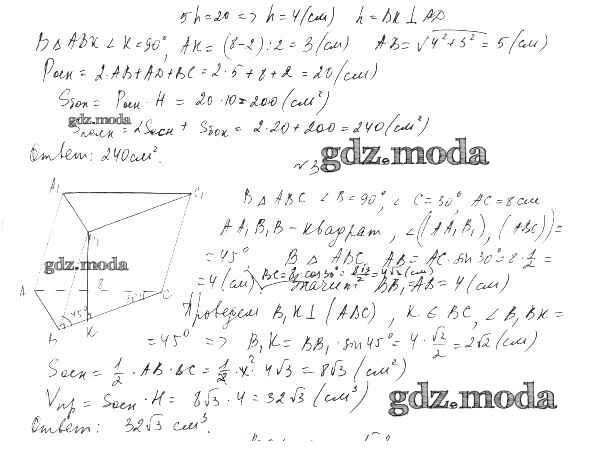 5h=20 => h=4(см) h=BK⊥AD
В Δ ABK ∠K=90°, AK=(8-2):2=3(см) AB=√4²+3²=5(см)
Pосн=2·AB+AD+BC=2·5+8+2=20(см)
Sбок=Pосн·H=20·10=200(см²)
gdz.moda
Sполн=2Sосн+Sбок=2·20+200=240(см²)
Ответ: 240см².
№3
gdz.moda
В Δ ABC ∠B=90°, ∠C=30° AC=8см
AA₁B₁B-квадрат, ∠((AA₁B₁),(ABC))=
=45° В Δ ABC AB=AC·sin30°=8·1/2=
=4(см) Значит BB₁=AB=4(см)
Проведем B₁K⊥(ABC), K∈BC, ∠B₁BK=
=45° => B₁K=BB₁·sin45°=4·√2/2=2√2(см)
A₁ C₁
gdz.moda
A 8 C
45°
B K
Sосн=1/2·AB·BC=1/2·4·4√3=8√3(см²)
Vпр=Sосн·H=8√3·4=32√3(см³)
gdz.moda
Ответ: 32√3 см³.